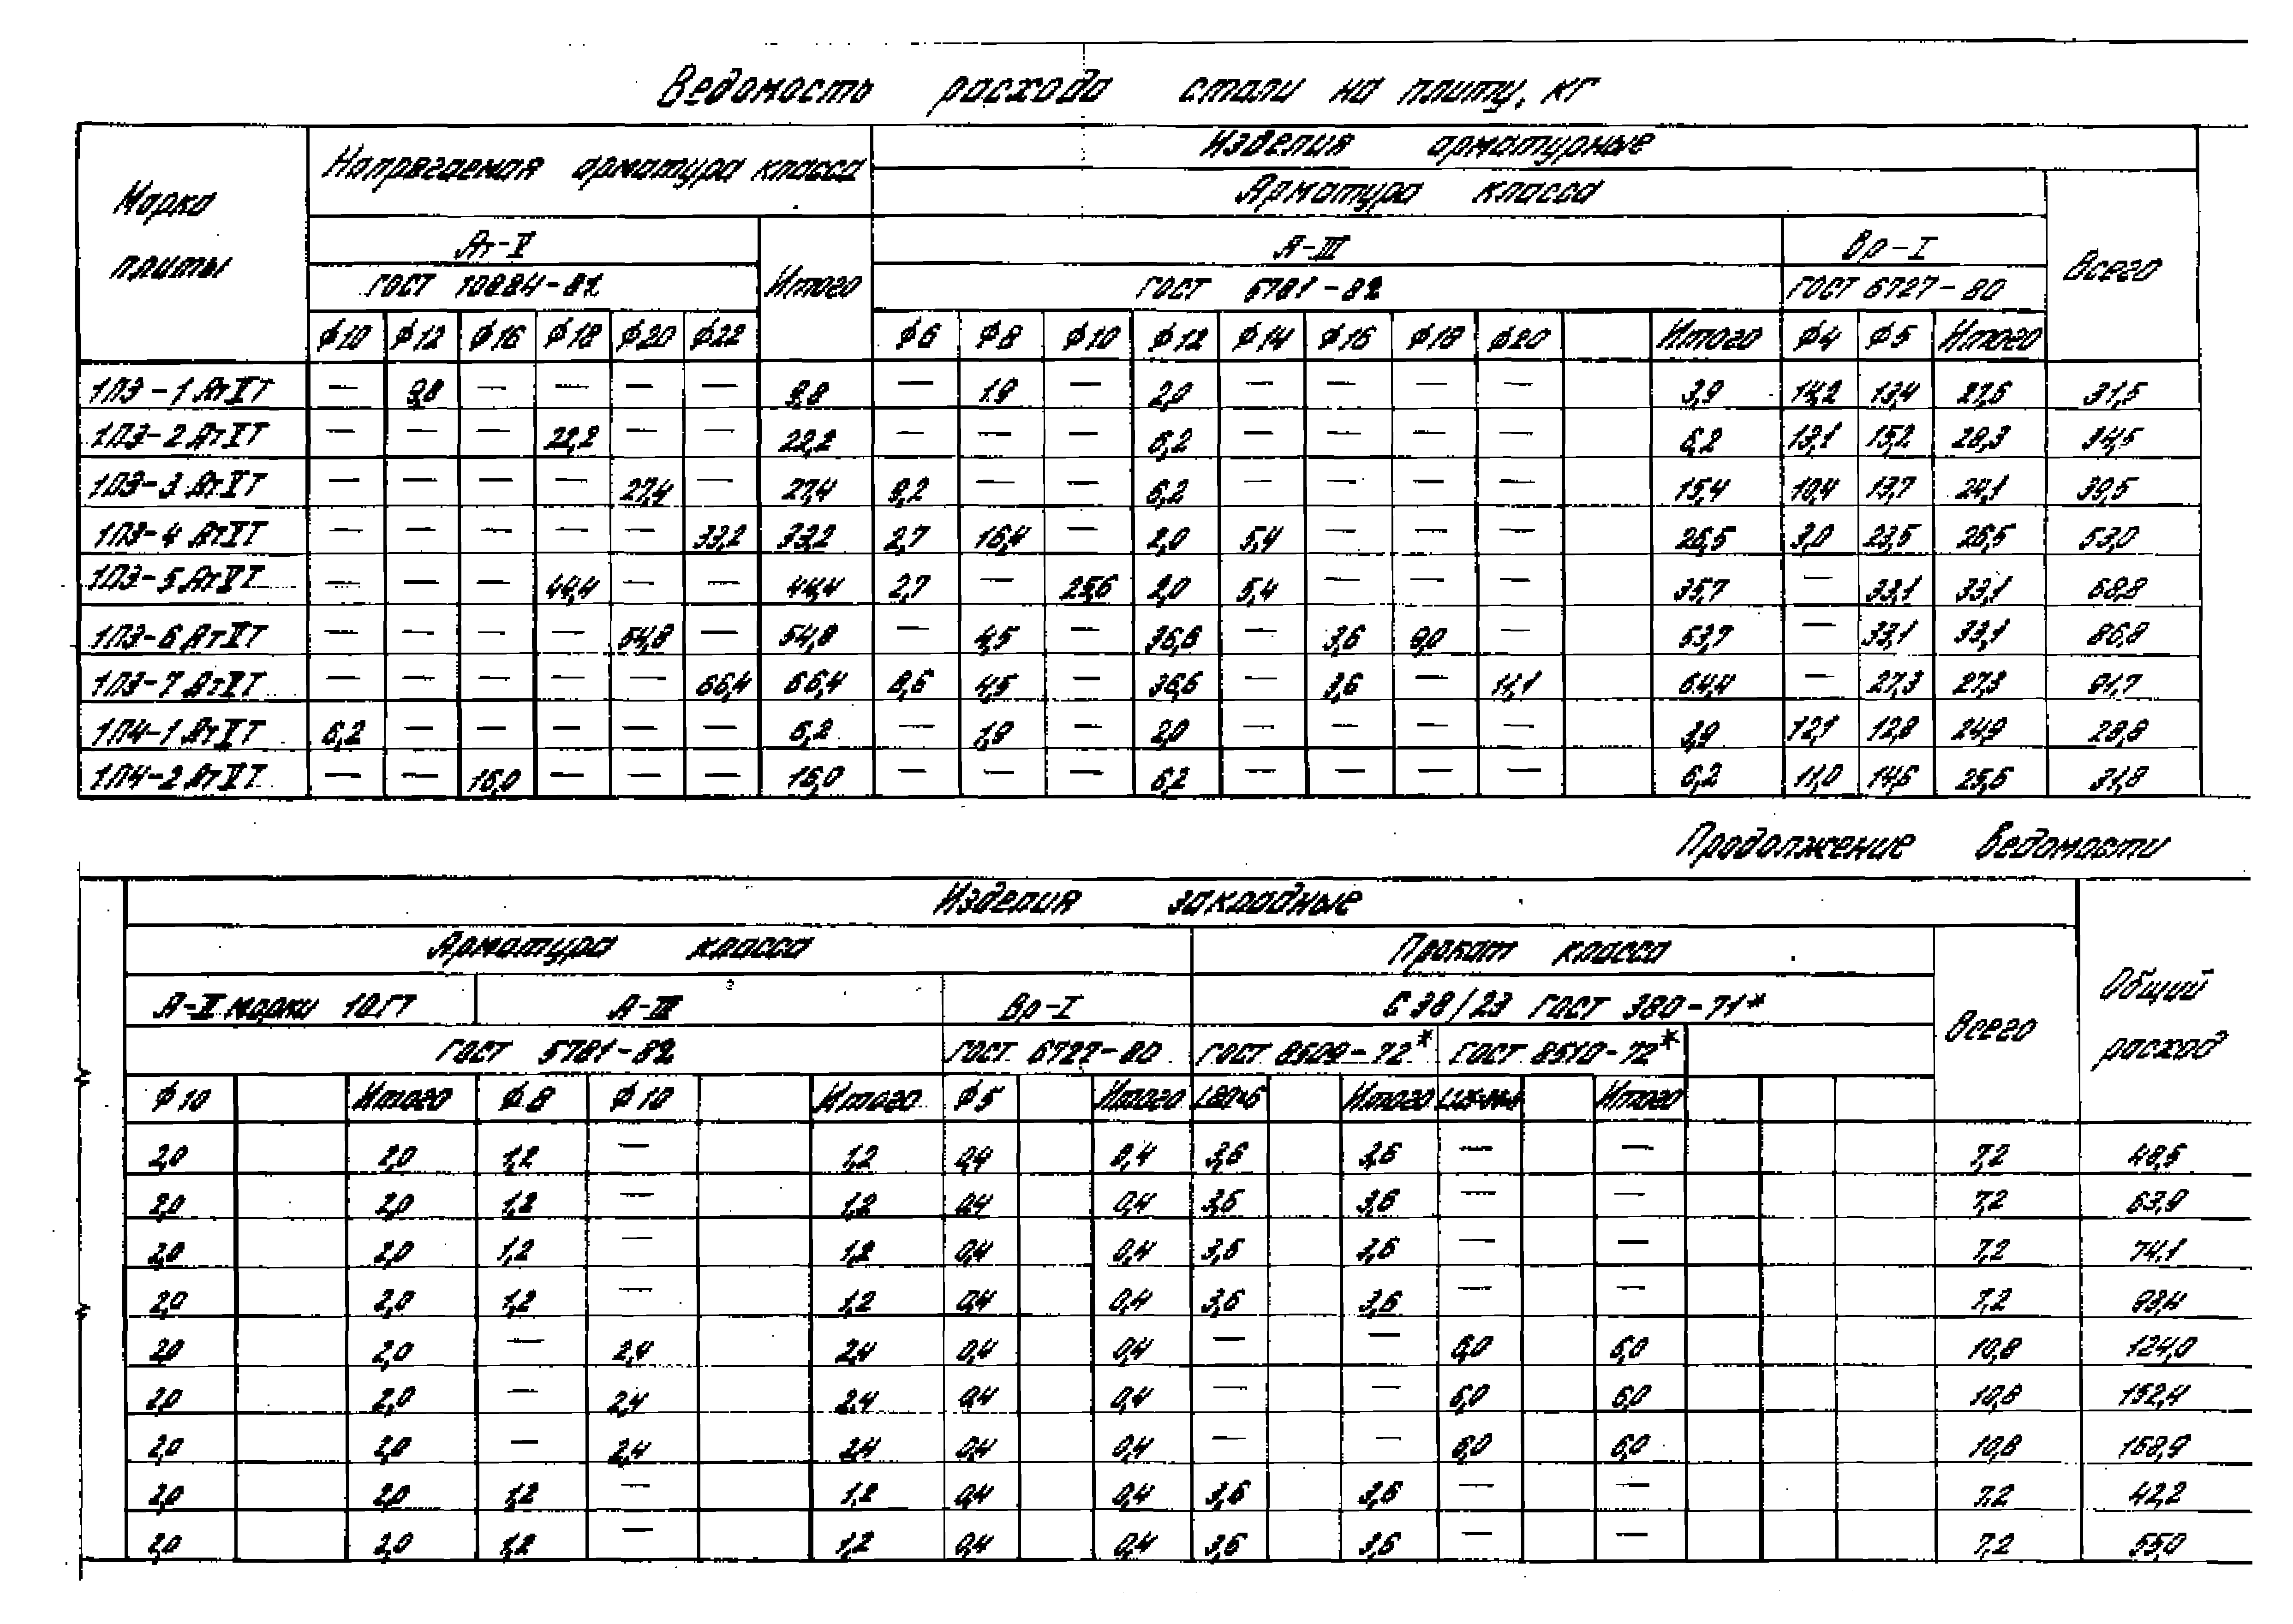 Ведомость расхода стали на плиту, кг
Марка плиты
Напрягаемая арматура класса
Изделия арматурные
Арматура класса
Ат-V
Итого
А-III
Вр-I
Всего
ГОСТ 10884-81
ГОСТ 5781-82
ГОСТ 6727-80
ф10 ф12 ф16 ф18 ф20 ф22 ф6 ф8 ф10 ф12 ф14 ф16 ф18 ф20 Итого ф4 ф5 Итого
1ПЭ-1 АтVТ — 9,8 — — — — 9,8 — 1,9 — 2,0 — — — — 3,9 14,2 13,4 27,6 31,5
1ПЭ-2 АтVТ — — — 22,2 — — 22,2 — — — 6,2 — — — — 6,2 13,1 15,2 28,3 34,5
1ПЭ-3 АтVТ — — — — 27,4 — 27,4 9,2 — — 6,2 — — — — 15,4 10,4 13,7 24,1 39,5
1ПЭ-4 АтVТ — — — — — 33,2 33,2 2,7 16,4 — 2,0 5,4 — — — 26,5 3,0 23,5 26,5 53,0
1ПЭ-5 АтVТ — — — 44,4 — — 44,4 2,7 — 25,6 2,0 5,4 — — — 35,7 — 33,1 33,1 68,8
1ПЭ-6 АтVТ — — — — 54,8 — 54,8 — 4,5 — 36,6 — 3,6 9,0 — 53,7 — 33,1 33,1 86,8
1ПЭ-7 АтVТ — — — — — 66,4 66,4 8,6 4,5 — 36,6 — 3,6 — 11,1 64,4 — 27,3 27,3 91,7
1П4-1 АтVТ 6,2 — — — — — 6,2 — 1,9 — 2,0 — — — — 3,9 12,1 12,8 24,9 28,8
1П4-2 АтVТ — — 16,0 — — — 16,0 — — — 6,2 — — — — 6,2 11,0 14,6 25,6 31,8
Продолжение ведомости
Изделия закладные
Общий расход
Арматура класса
Прокат класса
Всего
А-II марки 10ГТ
А-III
Вр-I
С 38/23 ГОСТ 380-71*
ГОСТ 5781-82
ГОСТ 6727-80
ГОСТ 8509-72*
ГОСТ 8510-72*
ф10 Итого ф8 ф10 Итого ф5 Итого Итого Итого
2,0 2,0 1,2 — 1,2 0,4 0,4 3,6 3,6 — — 7,2 48,5
2,0 2,0 1,2 — 1,2 0,4 0,4 3,6 3,6 — — 7,2 63,9
2,0 2,0 1,2 — 1,2 0,4 0,4 3,6 3,6 — — 7,2 74,1
2,0 2,0 1,2 — 1,2 0,4 0,4 3,6 3,6 — — 7,2 93,4
2,0 2,0 — 2,4 2,4 0,4 0,4 — — 6,0 6,0 10,8 124,0
2,0 2,0 — 2,4 2,4 0,4 0,4 — — 6,0 6,0 10,8 152,4
2,0 2,0 — 2,4 2,4 0,4 0,4 — — 6,0 6,0 10,8 168,9
2,0 2,0 1,2 — 1,2 0,4 0,4 3,6 3,6 — — 7,2 42,2
2,0 2,0 1,2 — 1,2 0,4 0,4 3,6 3,6 — — 7,2 55,0